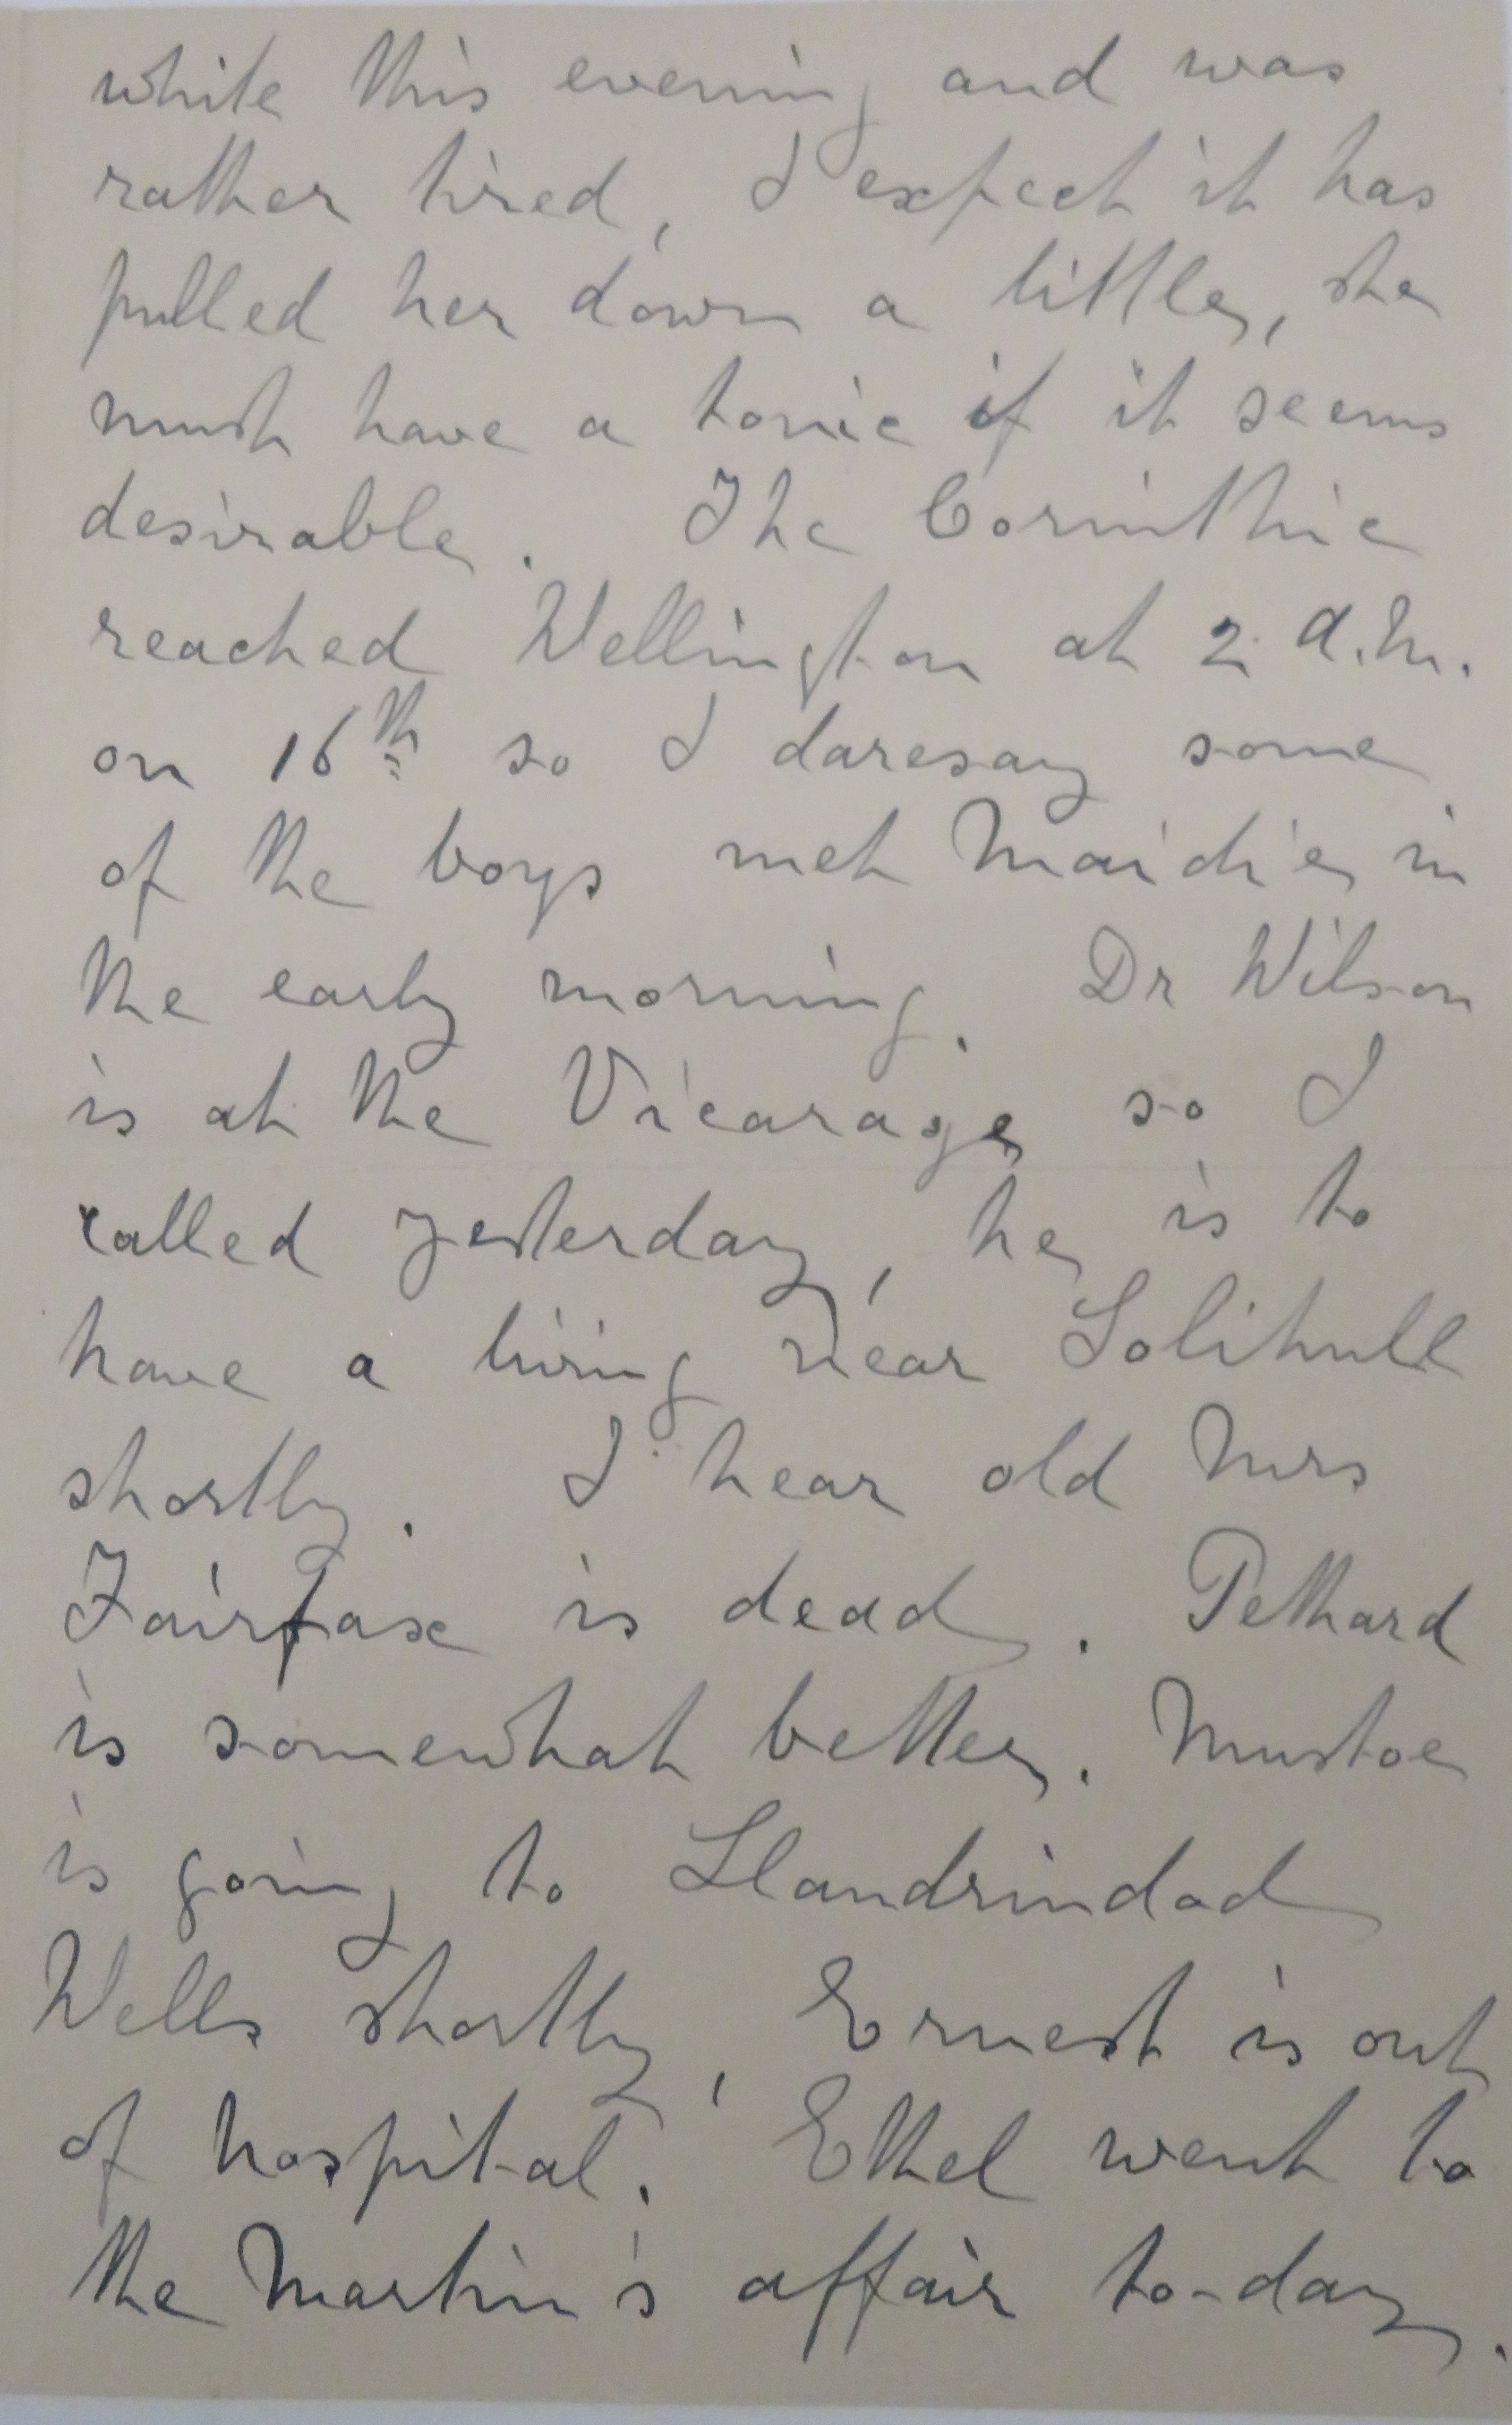 while this evening and was
rather tired, I expect it has
pulled her down a little, she
must have a tonic if it seems
desirable. The Corinthic
reached Wellington at 2 a.m.
on 16th so I daresay some
of the boys met Maidie in
the early morning. Dr Wilson
is at the Vicarage so I
called yesterday, he is to
have a living near Solihull
shortly. I hear old Mrs
Fairfax is dead. Pethard
is somewhat better. Mustoe
is going to Llandrindod
Wells shortly, Ernest is out
of hospital. Ethel went to
the Martin's affair to-day.